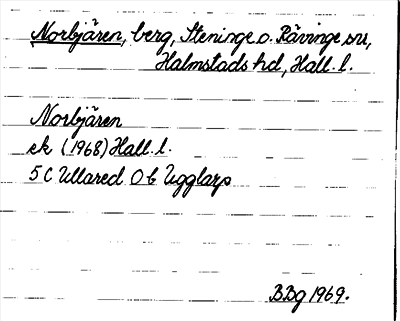 Norbjären, berg, Steninge o. Rävinge snr,
Halmstads hd, Hall. l.
Norbjären
ek (1968) Hall. l.
5 C Ullared 0 b Ugglarp
BBg 1969.